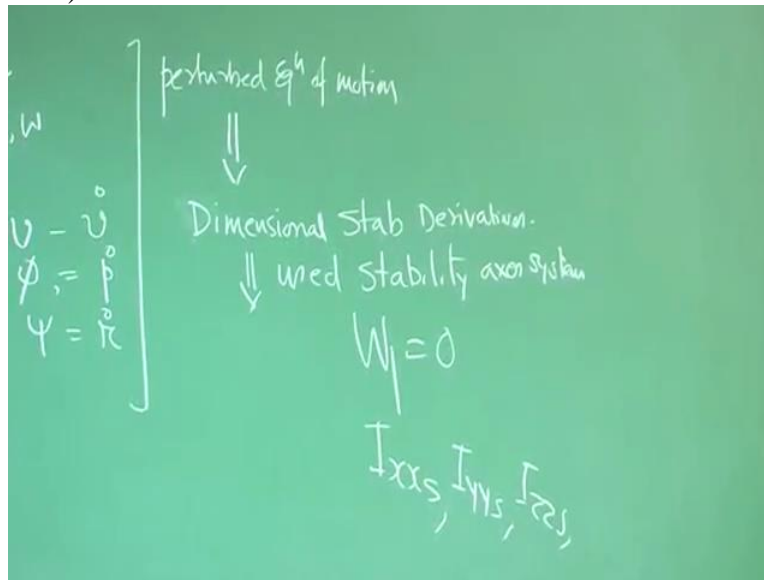 perturbed Eqⁿ of motion
, W
⇓
Dimensional Stab Derivatives.
υ - υ̊
⇓ used stability axes system
φ, = p̊
ψ = r̊
W₁ = 0
Ixxs, Iyys, Izzs,